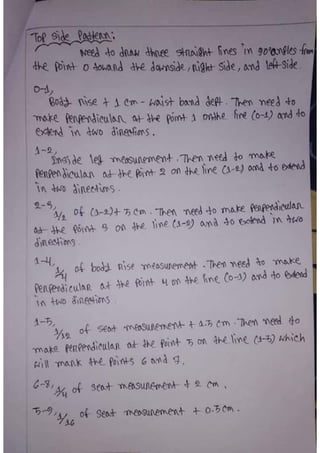 Top side Pattern:
Need to draw three straight lines in 90°angles from
the point 0 toward the downside, right side, and left side.
0-1,
Body rise + 1 cm - waist band dept. Then need to
make perpendicular at the point 1 on the line (0-1) and to
extend in two directions.
1-2,
Inside leg measurement. Then need to make
perpendicular at the point 2 on the line (1-2) and to extend
in two directions.
2-3,
1/2 of (1-2)+ 5 cm. Then need to make perpendicular
at the point 3 on the line (1-2) and to extend in two
directions.
1-4,
1/4 of body rise measurement. Then need to make
perpendicular at the point 4 on the line (0-1) and to extend
in two directions
1-5,
1/12 of seat measurement + 1.5 cm. Then need to
make perpendicular at the point 5 on the line (1-5) which
will mark the points 6 and 7.
6-8, 1/4 of seat measurement + 2 cm.
5-9, 1/16 of seat measurement + 0.5 cm.